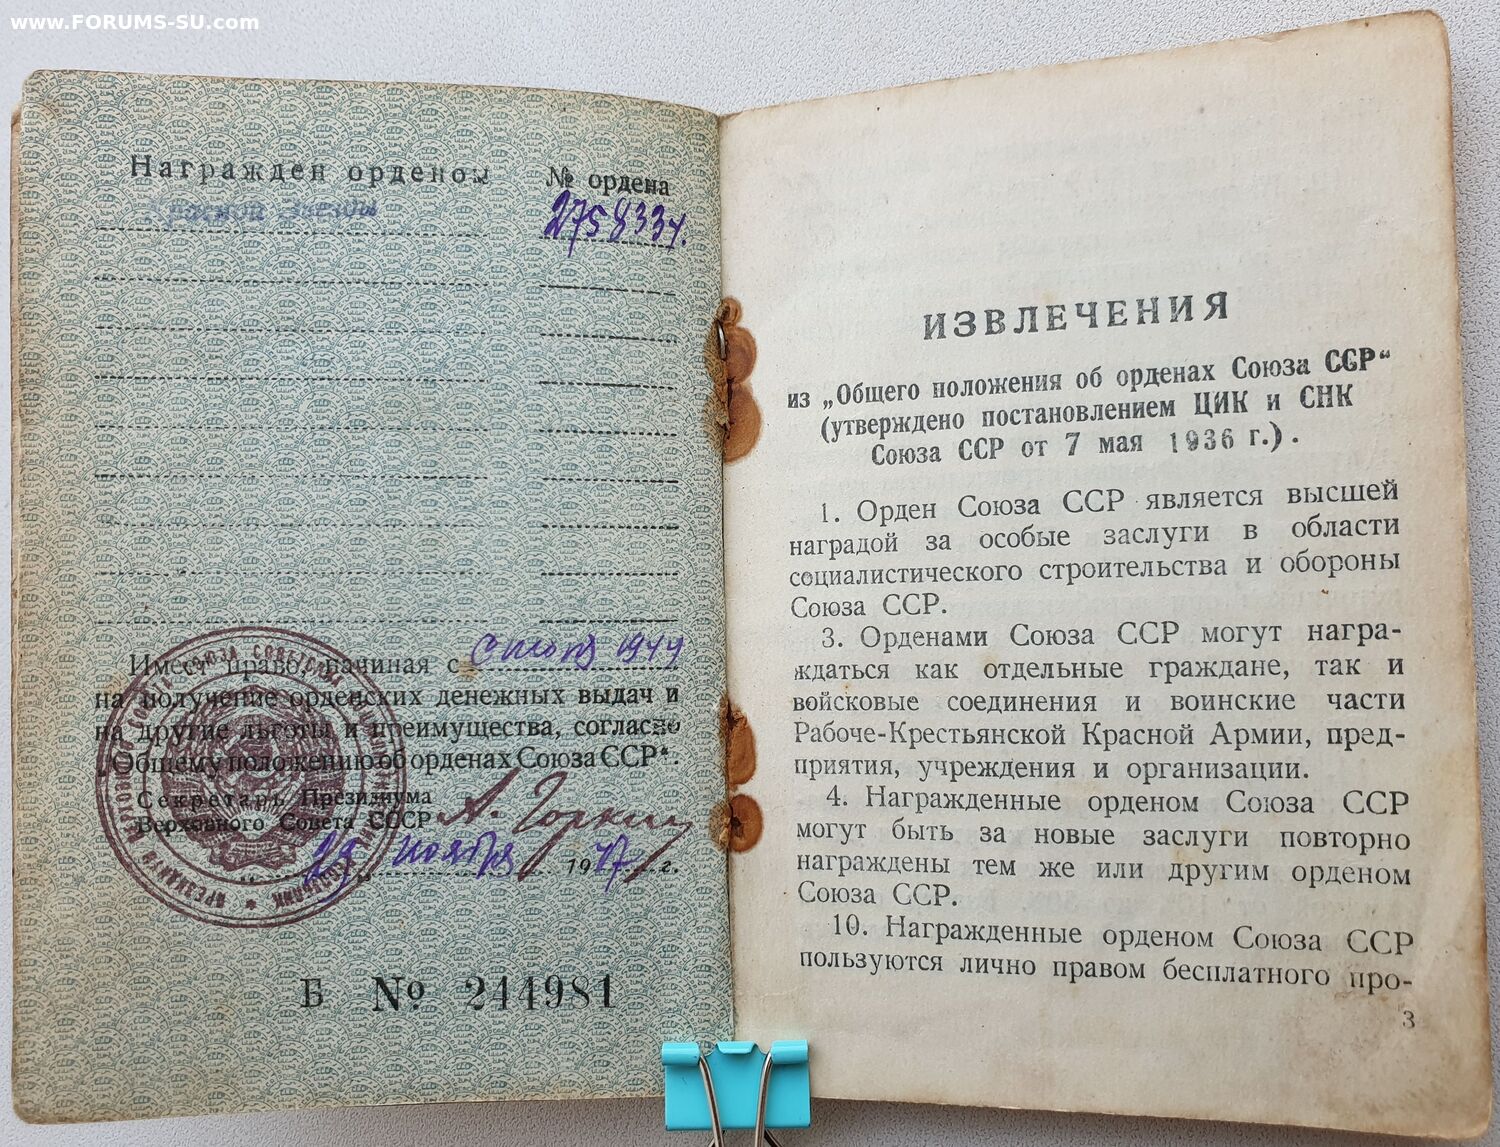 www.FORUMS-SU.com
Награжден орденом
№ ордена
Красной Звезды
2758334.
Имеет право, начиная с июня 1944
на получение орденских денежных выдач и
на другие льготы и преимущества, согласно
„Общему положению об орденах Союза ССР“.
Секретарь Президиума
Верховного Совета СССР
А. Горкин
29 ноября 1947 г.
Б № 244981
ИЗВЛЕЧЕНИЯ
из „Общего положения об орденах Союза ССР“
(утверждено постановлением ЦИК и СНК
Союза ССР от 7 мая 1936 г.).
1. Орден Союза ССР является высшей
наградой за особые заслуги в области
социалистического строительства и обороны
Союза ССР.
3. Орденами Союза ССР могут награ-
ждаться как отдельные граждане, так и
войсковые соединения и воинские части
Рабоче-Крестьянской Красной Армии, пред-
приятия, учреждения и организации.
4. Награжденные орденом Союза ССР
могут быть за новые заслуги повторно
награждены тем же или другим орденом
Союза ССР.
10. Награжденные орденом Союза ССР
пользуются лично правом бесплатного про-
3